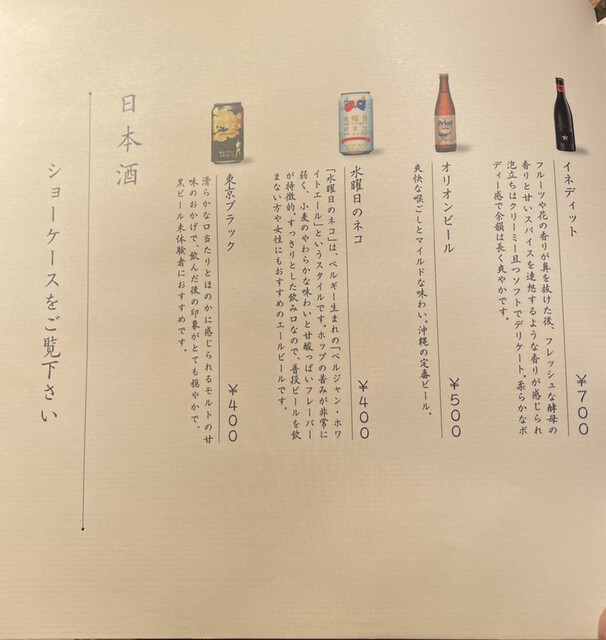 イネディット
¥700
フルーツや花の香りが鼻を抜けた後、フレッシュな酵母の
香りと甘いスパイスを連想するような香りが感じられ
泡立ちはクリーミー且つソフトでデリケート。柔らかなボ
ディー感で余韻は長く爽やかです。
オリオンビール
¥500
爽快な喉ごしとマイルドな味わい。沖縄の定番ビール。
水曜日のネコ
¥400
「水曜日のネコ」は、ベルギー生まれの「ベルジャン・ホワ
イトエール」というスタイルです。ホップの苦みが非常に
弱く、小麦のやわらかな味わいと甘酸っぱいフレーバー
が特徴的。すっきりとした飲み口なので、普段ビールを飲
まない方や女性にもおすすめのエールビールです。
東京ブラック
¥400
清らかな口当たりとほのかに感じられるモルトの甘
味のおかげで、飲んだ後の印象がとても穏やかで、
黒ビール未体験者におすすめです。
日本酒
ショーケースをご覧下さい